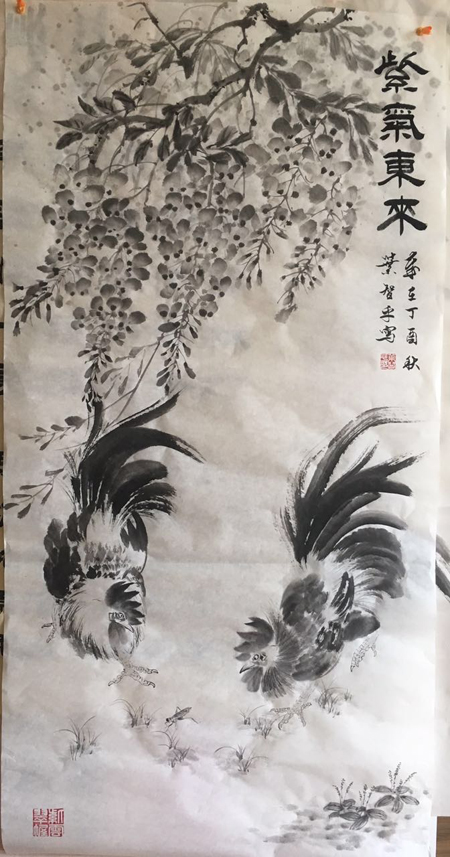 紫氣東來
歲在丁酉秋
葉智寫